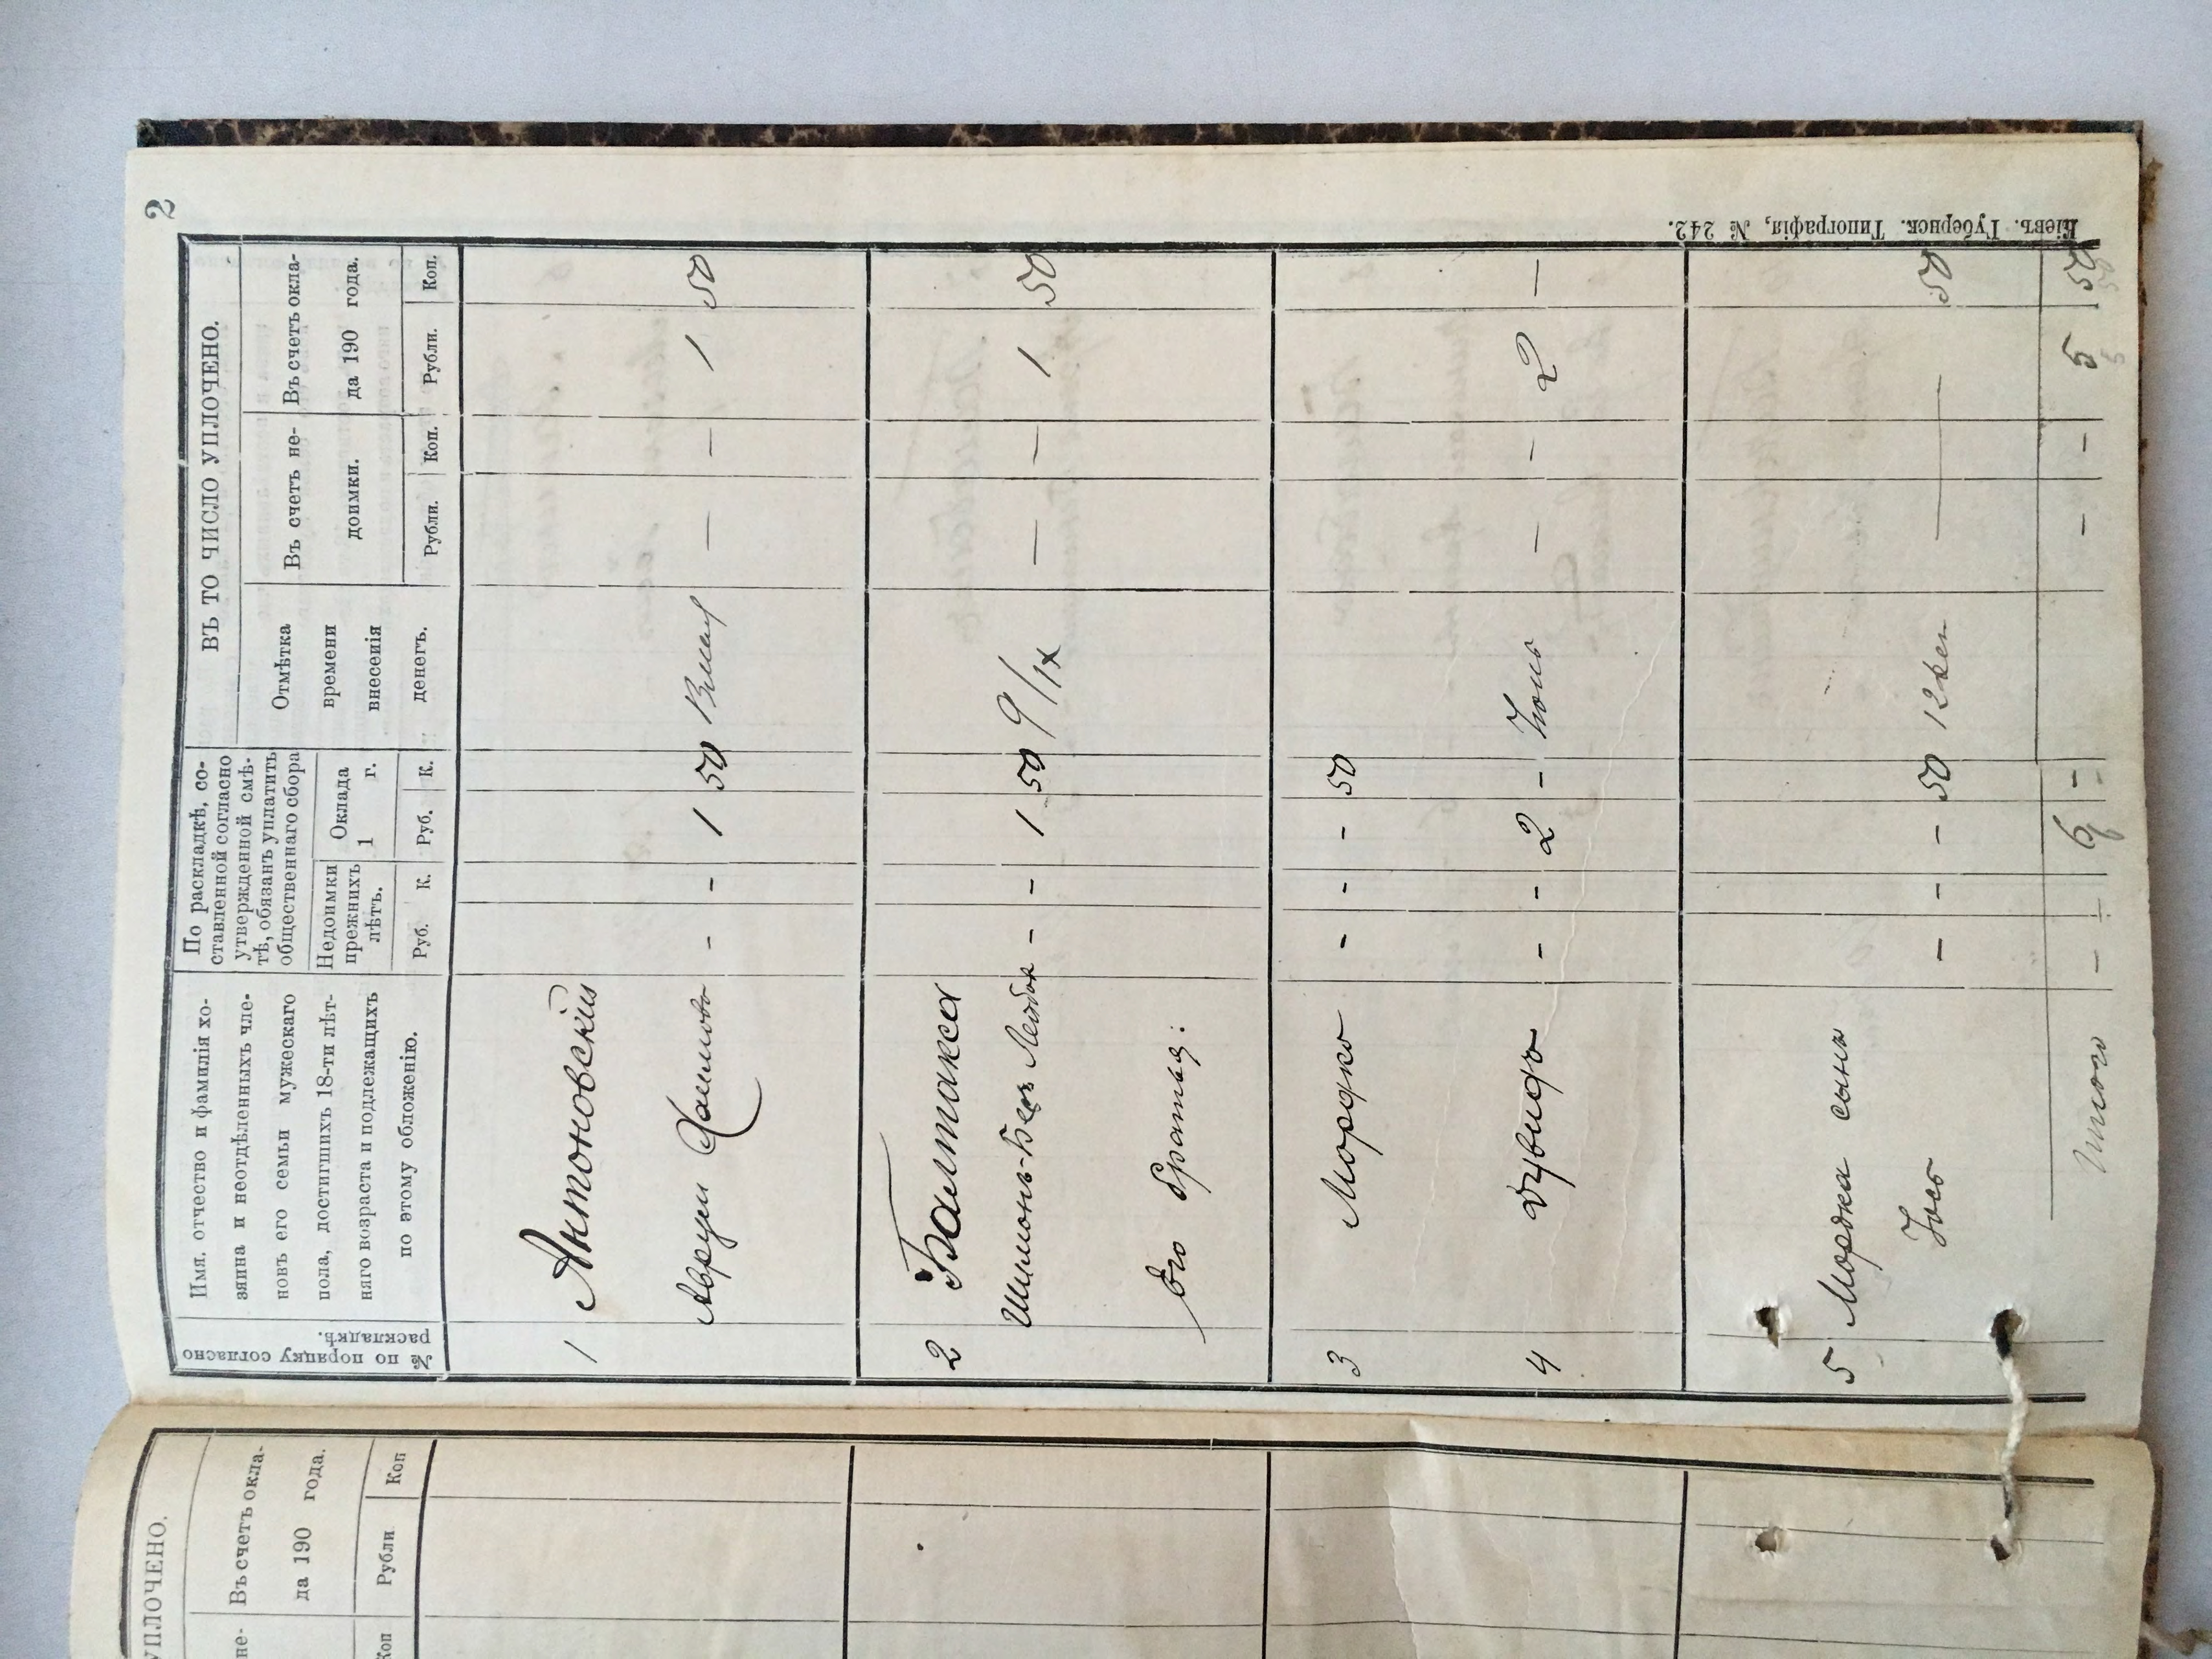 2
№ по порядку согласно
раскладкѣ.
Имя, отчество и фамилія хо-
зяина и неотдѣленныхъ чле-
новъ его семьи мужескаго
пола, достигшихъ 18-ти лѣт-
няго возраста и подлежащихъ
по этому обложенію.
По раскладкѣ, со-
ставленной согласно
утвержденной смѣ-
тѣ, обязанъ уплатить
общественнаго сбора
Недоимки
прежнихъ
лѣтъ.
Руб. К.
Оклада
1 г.
Руб. К.
ВЪ ТО ЧИСЛО УПЛОЧЕНО.
Отмѣтка
времени
внесенія
денегъ.
Въ счетъ не-
доимки.
Рубли. Коп.
Въ счетъ окла-
да 190 года.
Рубли. Коп.
1 Антоновскій
Аврум Хаимовъ - - 1 50 — — 1 50
2 Балтакса
Шлимонъ-Беръ Лейбов - - 1 50 9/IX — — 1 50
Его братья:
3 Мордко - - - 50
4 Дувидъ - - 2 - Іюнь - - 2 —
5 Мордка сынъ
Іось - - - 50 12 Сен — 50
Итого - - 6 - - - 5 50
Кіевъ. Губернск. Типографія, № 242.
УПЛОЧЕНО.
не-
Коп
Въ счетъ окла-
да 190 года.
Рубли Коп